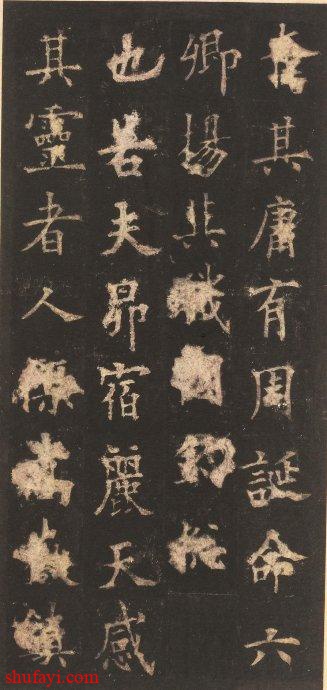 其庸有周誕命六
卿揚其職
也若夫昴宿麗天感
其靈者人傑嵩鎮
shufayi.com